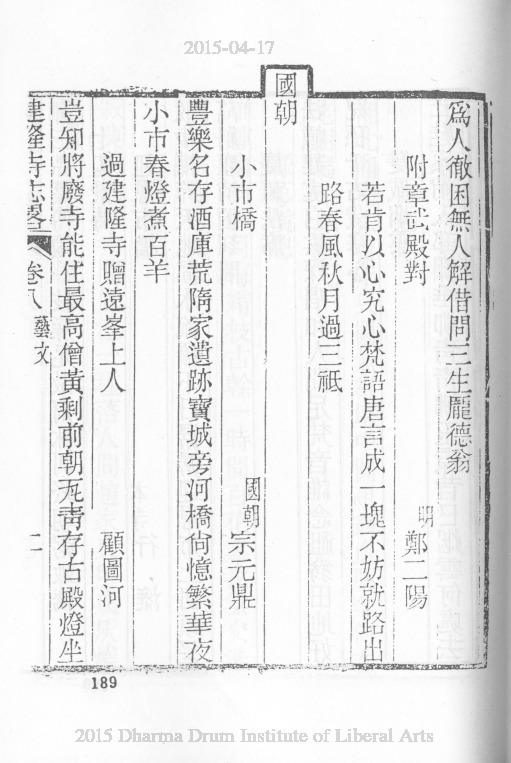 2015-04-17
爲人徹困無人解借問三生龐德翁
附章武殿對 明 鄭二陽
若肯以心究心梵語唐言成一塊不妨就路出
路春風秋月過三祇
國朝
小市橋 國朝 宗元鼎
豐樂名存酒庫荒隋家遺跡寶城旁河橋尙憶繁華夜
小市春燈煮百羊
過建隆寺贈遠峯上人 顧圖河
豈知將廢寺能住最高僧黃剩前朝瓦靑存古殿燈坐
建隆寺志畧 卷八 藝文 二
189
2015 Dharma Drum Institute of Liberal Arts